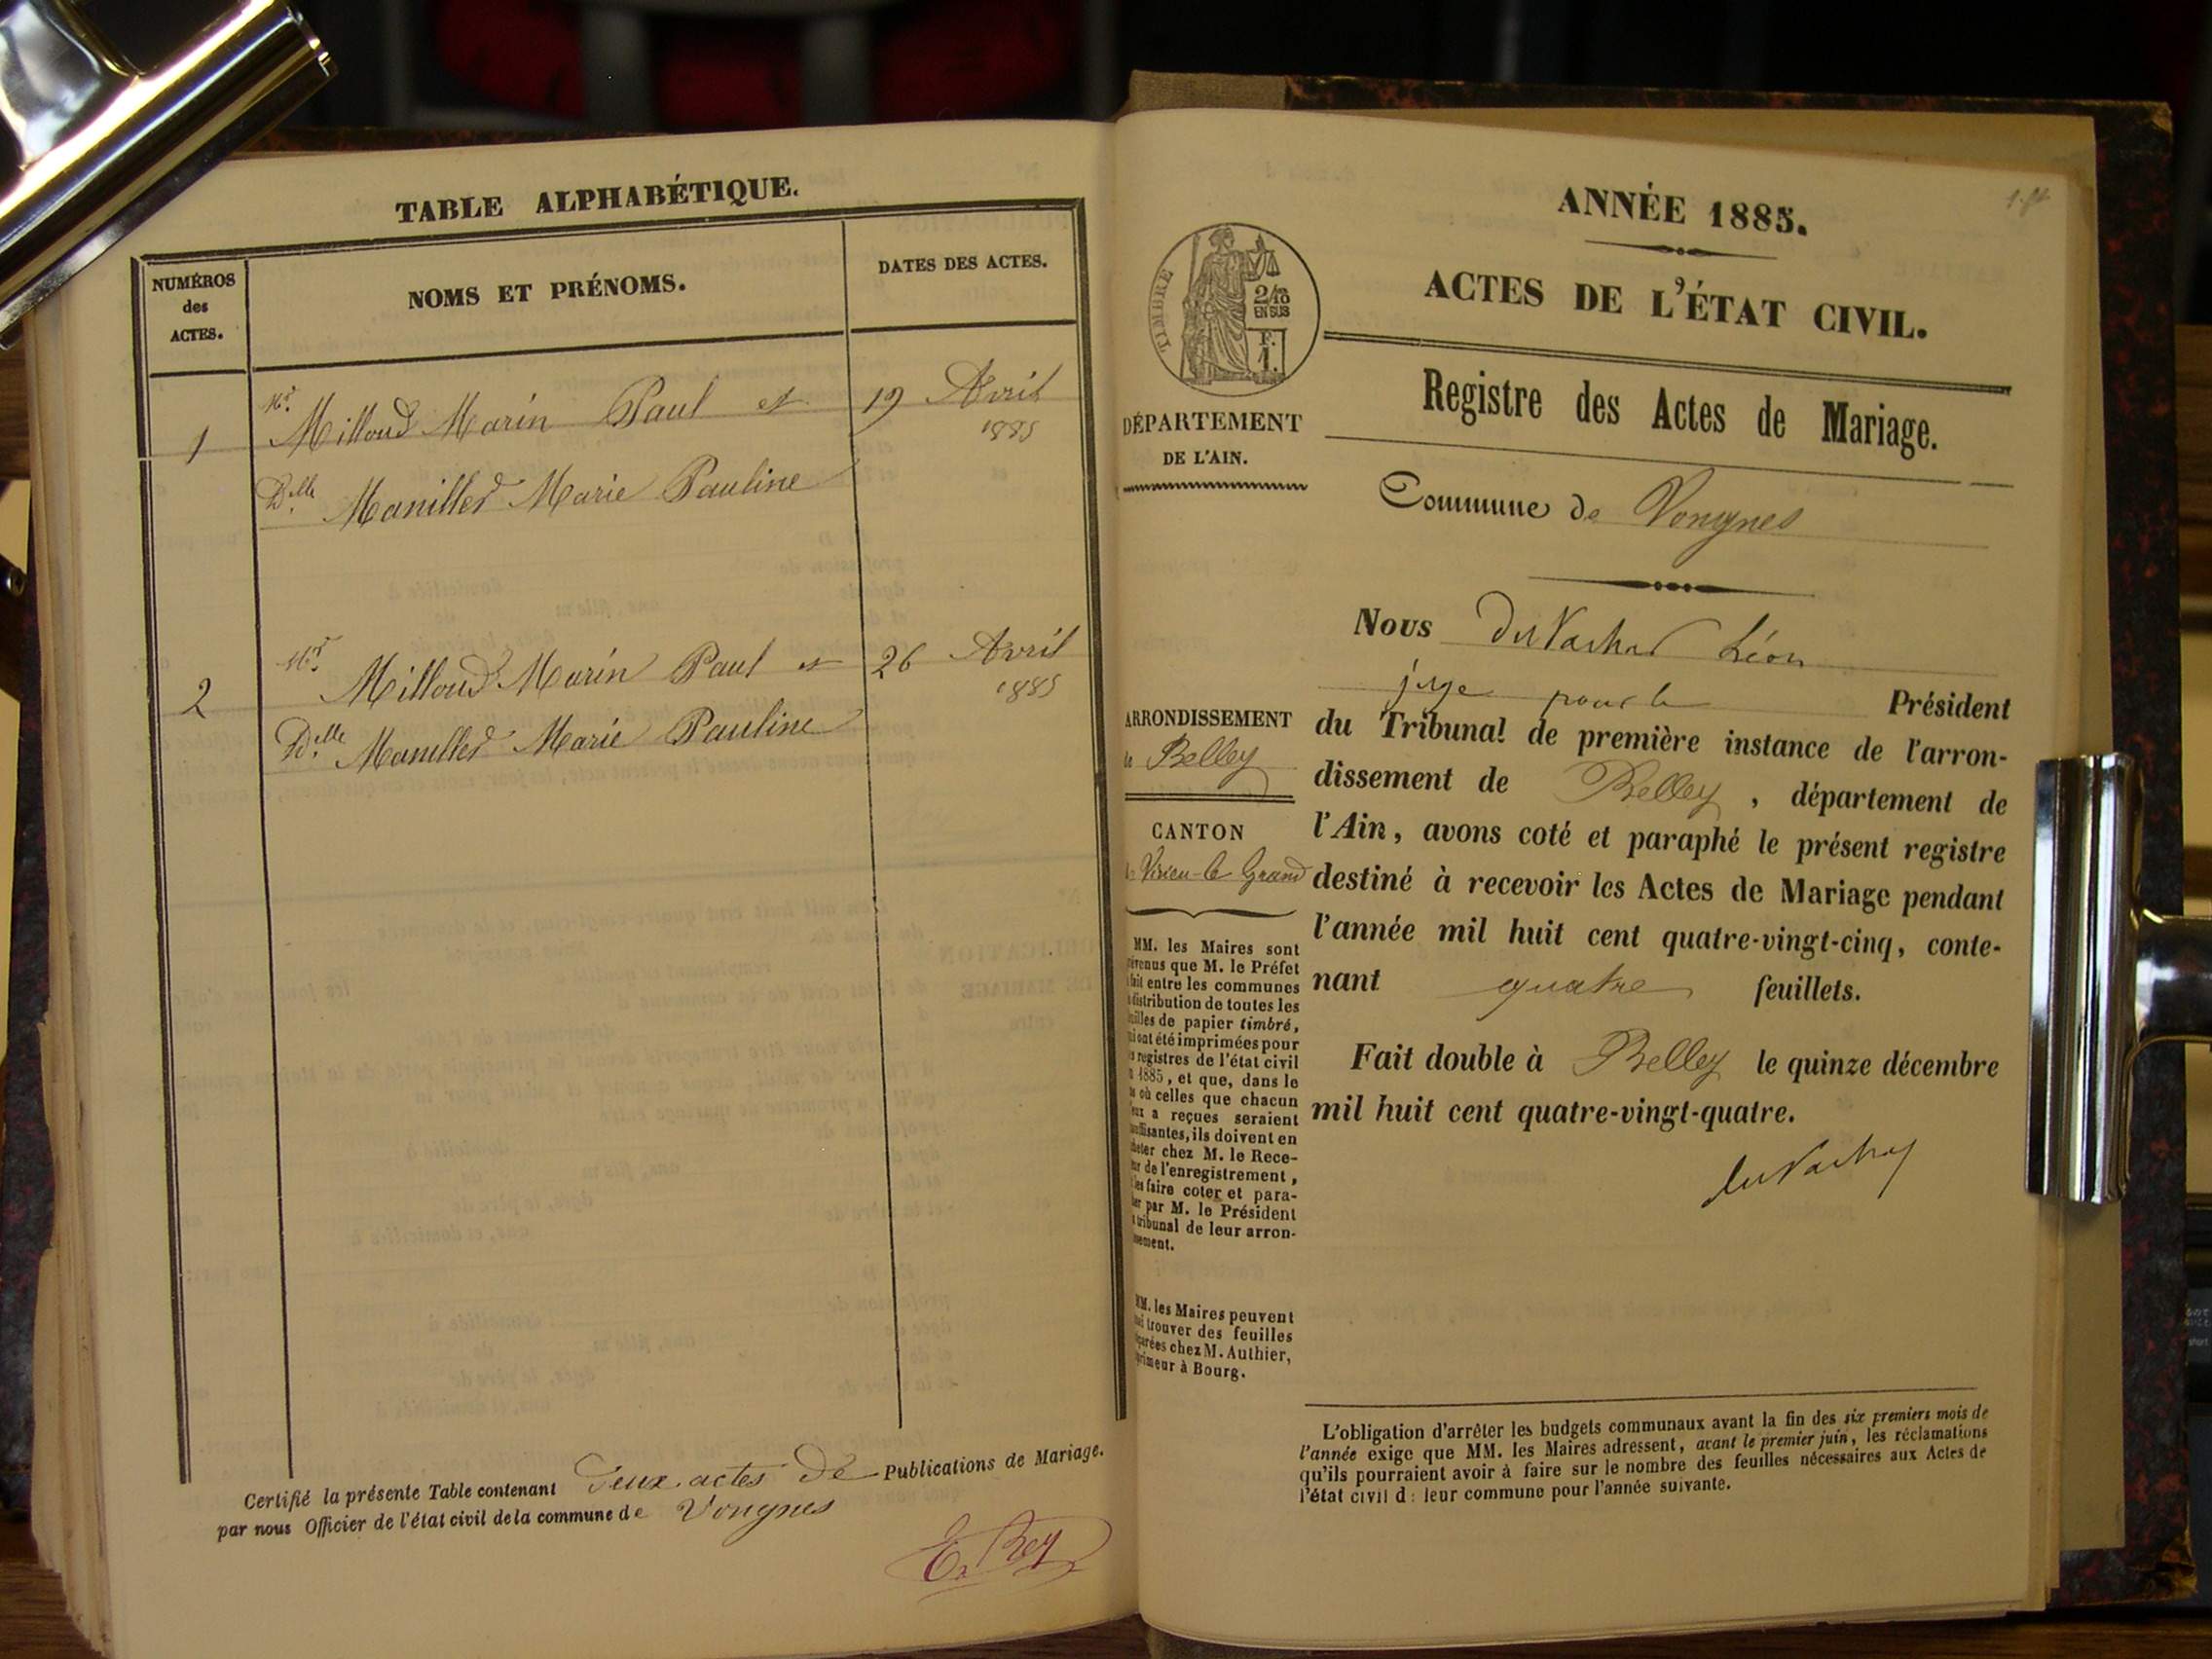 TABLE ALPHABÉTIQUE.
NUMÉROS
des
ACTES.
NOMS ET PRÉNOMS.
DATES DES ACTES.
1
Mr. Milloud Marin Paul et
19 Avril
1885
Delle Manillier Marie Pauline
2
Mr. Milloud Marin Paul et
26 Avril
1885
Delle Manillier Marie Pauline
Certifié la présente Table contenant Deux actes de Publications de Mariage.
par nous Officier de l'état civil de la commune de Vongnes
E. Rey
1.ft
ANNÉE 1885.
ACTES DE L'ÉTAT CIVIL.
TIMBRE
2/10
EN SUS
F.
1.
DÉPARTEMENT
DE L'AIN.
Registre des Actes de Mariage.
Commune de Vongnes
Nous Léon
juge pour le Président
du Tribunal de première instance de l'arron-
dissement de Belley, département de
l'Ain, avons coté et paraphé le présent registre
destiné à recevoir les Actes de Mariage pendant
l'année mil huit cent quatre-vingt-cinq, conte-
nant quatre feuillets.
Fait double à Belley le quinze décembre
mil huit cent quatre-vingt-quatre.
ARRONDISSEMENT
de Belley
CANTON
de Virieu-le-Grand
MM. les Maires sont
que M. le Préfet
fait entre les communes
distribution de toutes les
de papier timbré,
ont été imprimées pour
registres de l'état civil
1885, et que, dans le
où celles que chacun
a reçues seraient
ils doivent en
chez M. le Rece-
de l'enregistrement,
les faire coter et para-
par M. le Président
tribunal de leur arron-
MM. les Maires peuvent
trouver des feuilles
chez M. Authier,
à Bourg.
L'obligation d'arrêter les budgets communaux avant la fin des six premiers mois de
l'année exige que MM. les Maires adressent, avant le premier juin, les réclamations
qu'ils pourraient avoir à faire sur le nombre des feuilles nécessaires aux Actes de
l'état civil de leur commune pour l'année suivante.